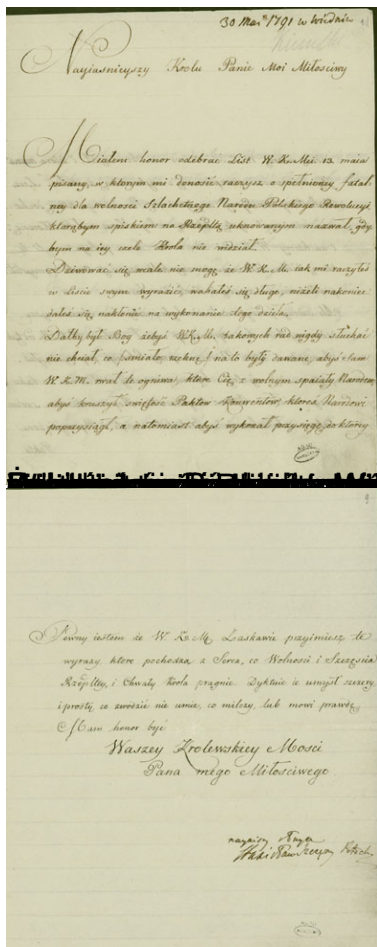 30 Maii 1791 w Wiedniu
Nayiaśnieyszy Krolu Panie Moi Miłościwy
Miałem honor odebrac List W. K. Mci 13. maia
pisany, w ktorym mi donosić raczysz o spełnioney fatal-
ney dla wolności Szlachetnego Narodu Polskiego Rewolucyi
ktorąbym spiskiem na Rzepltę uknowanym nazwał, gdy
bym na iey czele Krola nie widział.
Dziwować się wcale nie mogę, że W. K. M. iak mi raczyłeś
w Liście swym wyrazić, wahałeś się długo, niżeli nakoniec
dałeś się nakłonić na wykonanie tego dzieła.
Dałby był Bog żebyś W K. M. takowych rad nigdy słuchać
nie chciał, co (smiało rzeknę) na to były dawane, abyś sam
W. K. M. rwał te ogniwa, ktore Cię z wolnym spaiały Narodem,
abyś kruszył swiętość Paktow Konwentow, ktoreś Narodowi
poprzysiągł, a natomiast abyś wykonał przysięgę, do ktorey
9
Pewny iestem że W. K. M. Łaskawie przyimiesz te
wyrazy ktore pochodzą z Serca, co Wolności i Szczęścia
Rzeplltey, i Chwały Krola pragnie. Dyktuie ie umysł szczery
i prosty, co zwodzić nie umie, co milczy, lub mowi prawdę.
Mam honor być
Waszey Krolewskiey Mosci
Pana mego Miłosciwego
nayniższy sługa
Stanisław Szczęsny Potocki